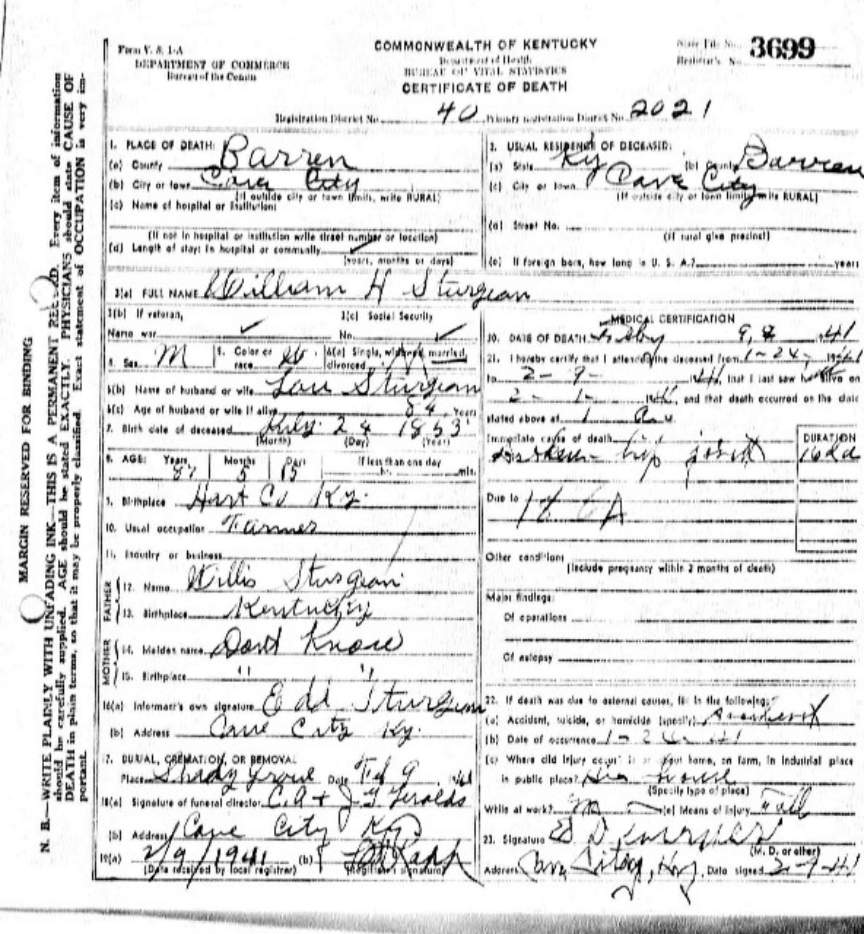 Form V. S. 1-A
DEPARTMENT OF COMMERCE
Bureau of the Census
COMMONWEALTH OF KENTUCKY
Department of Health
BUREAU OF VITAL STATISTICS
CERTIFICATE OF DEATH
State File No. 3699
Registrar's No.
Registration District No. 40 Primary Registration District No. 2021
MARGIN RESERVED FOR BINDING
N. B.—WRITE PLAINLY WITH UNFADING INK—THIS IS A PERMANENT RECORD. Every item of information
should be carefully supplied. AGE should be stated EXACTLY. PHYSICIANS should state CAUSE OF
DEATH in plain terms, so that it may be properly classified. Exact statement of OCCUPATION is very im-
portant.
1. PLACE OF DEATH:
(a) County Barren
(b) City or town Cave City
(If outside city or town limits, write RURAL)
(c) Name of hospital or institution:
(If not in hospital or institution write street number or location)
(d) Length of stay: In hospital or community
(years, months or days)
2. USUAL RESIDENCE OF DECEASED:
(a) State Ky (b) County Barren
(c) City or town Cave City
(If outside city or town limits, write RURAL)
(d) Street No.
(If rural give precinct)
(e) If foreign born, how long in U. S. A.? years
3(a) FULL NAME William H Sturgeon
3(b) If veteran,
Name war
3(c) Social Security
No.
4. Sex M 5. Color or race 6(a) Single, widowed, married, divorced M
6(b) Name of husband or wife Lou Sturgeon
6(c) Age of husband or wife if alive 84 Years
7. Birth date of deceased July 24 1853
(Month) (Day) (Year)
8. AGE: Years 87 Months 5 Days 15 If less than one day hr. min.
9. Birthplace Hart Co Ky.
10. Usual occupation Farmer
11. Industry or business
FATHER
12. Name Willis Sturgeon
13. Birthplace Kentucky
MOTHER
14. Maiden name
15. Birthplace " "
16(a) Informant's own signature Edd Sturgeon
(b) Address Cave City Ky.
17. BURIAL, CREMATION, OR REMOVAL
Place Shady Grove Date Feb 9 1941
18(a) Signature of funeral director C.A & J.T Geralds
(b) Address Cave City Ky
19(a) 2/9/1941 (b)
(Date received by local registrar) (Registrar's signature)
MEDICAL CERTIFICATION
20. DATE OF DEATH 41
21. I hereby certify that I attended the deceased from 1-24- 1941
to 2-9- 1941, that I last saw him alive on
2-1- 1941, and that death occurred on the date
stated above at 1 a.m.
Immediate cause of death
Broken hip joint
DURATION
16 da
Due to
186A
Other conditions
(Include pregnancy within 3 months of death)
Major findings:
Of operations
Of autopsy
22. If death was due to external causes, fill in the following:
(a) Accident, suicide, or homicide (specify) Accident
(b) Date of occurrence 1-24-41
(c) Where did injury occur? In or about home, on farm, in industrial place
in public place? His house
(Specify type of place)
While at work? no (e) Means of injury Fall
23. Signature
(M. D. or other)
Address Cave City, Ky, Date signed 2-9-41